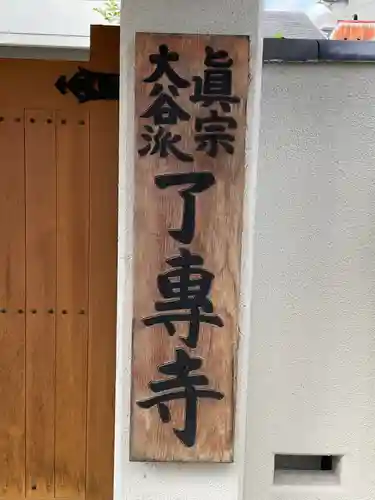 眞宗
大谷派
了専寺